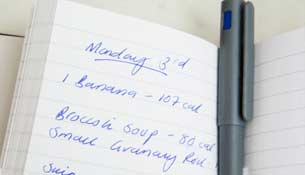 Monday 3rd
1 Banana - 107 cal
Broccoli Soup - 80 cal
Small Granary